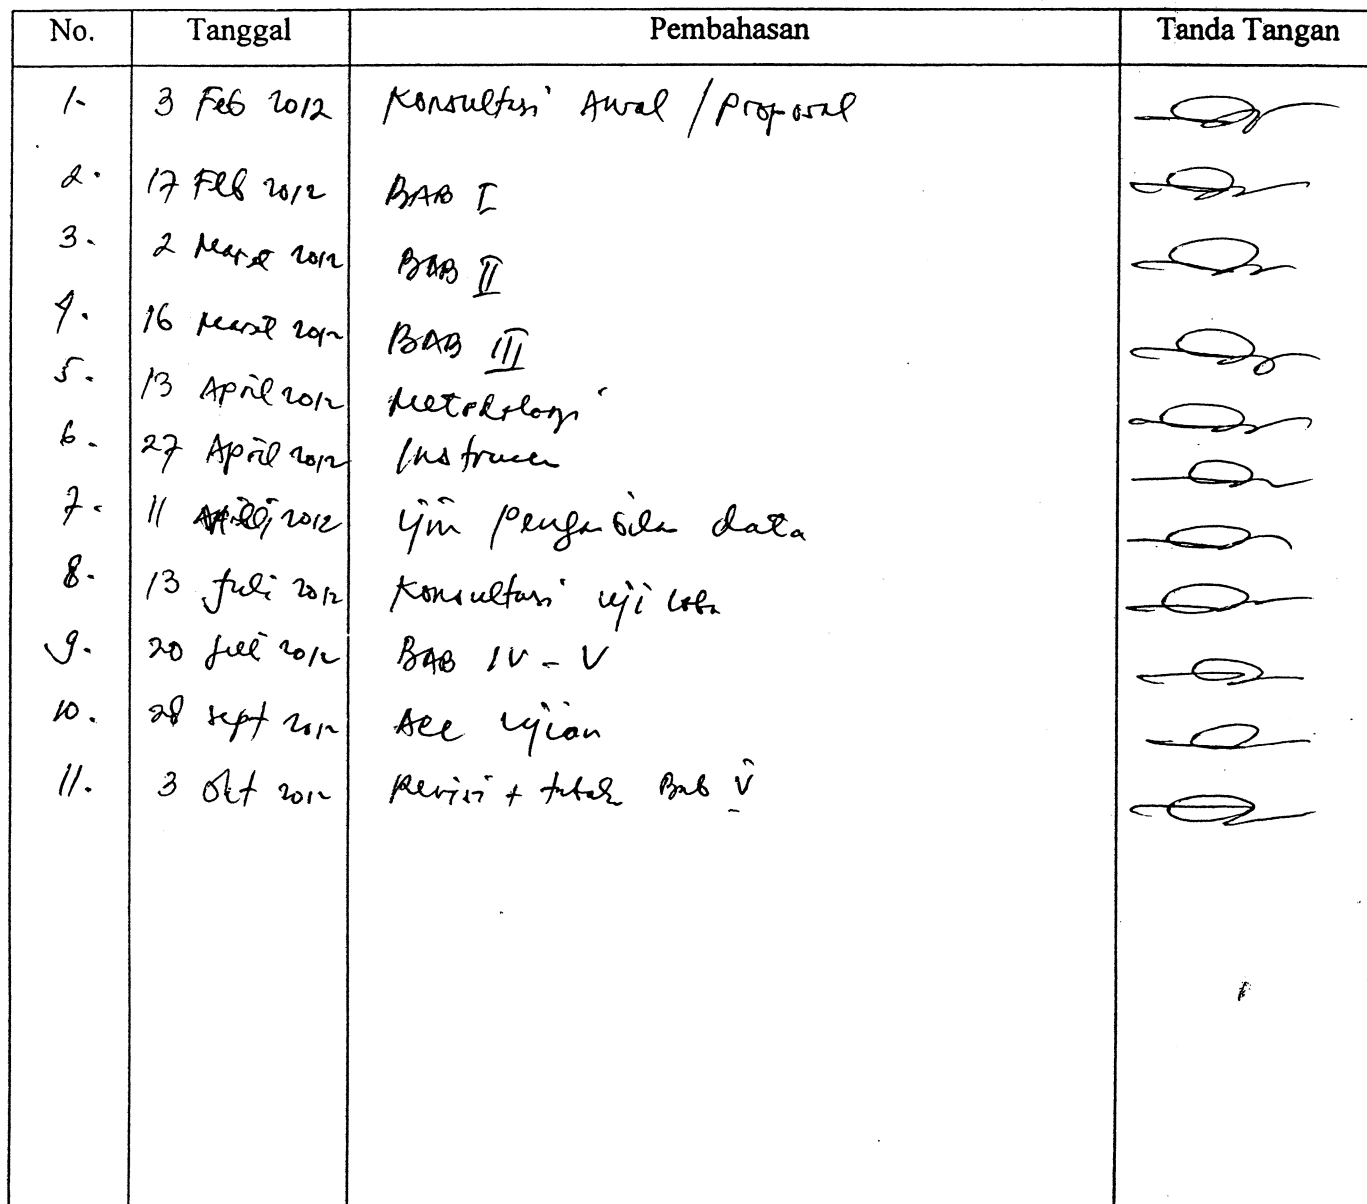 No. Tanggal Pembahasan Tanda Tangan
1. 3 Feb 2012 Konsultasi Awal / proposal
2. 17 Feb 2012 BAB I
3. 2 Maret 2012 BAB II
4. 16 Maret 2012 BAB III
5. 13 April 2012 Metodologi
6. 27 April 2012 Instrumen
7. 11 2012 ijin pengambilan data
8. 13 Juli 2012 Konsultasi uji coba
9. 20 Juli 2012 BAB IV - V
10. 28 Sept 2012 Acc ujian
11. 3 Okt 2012 Revisi + Bab V